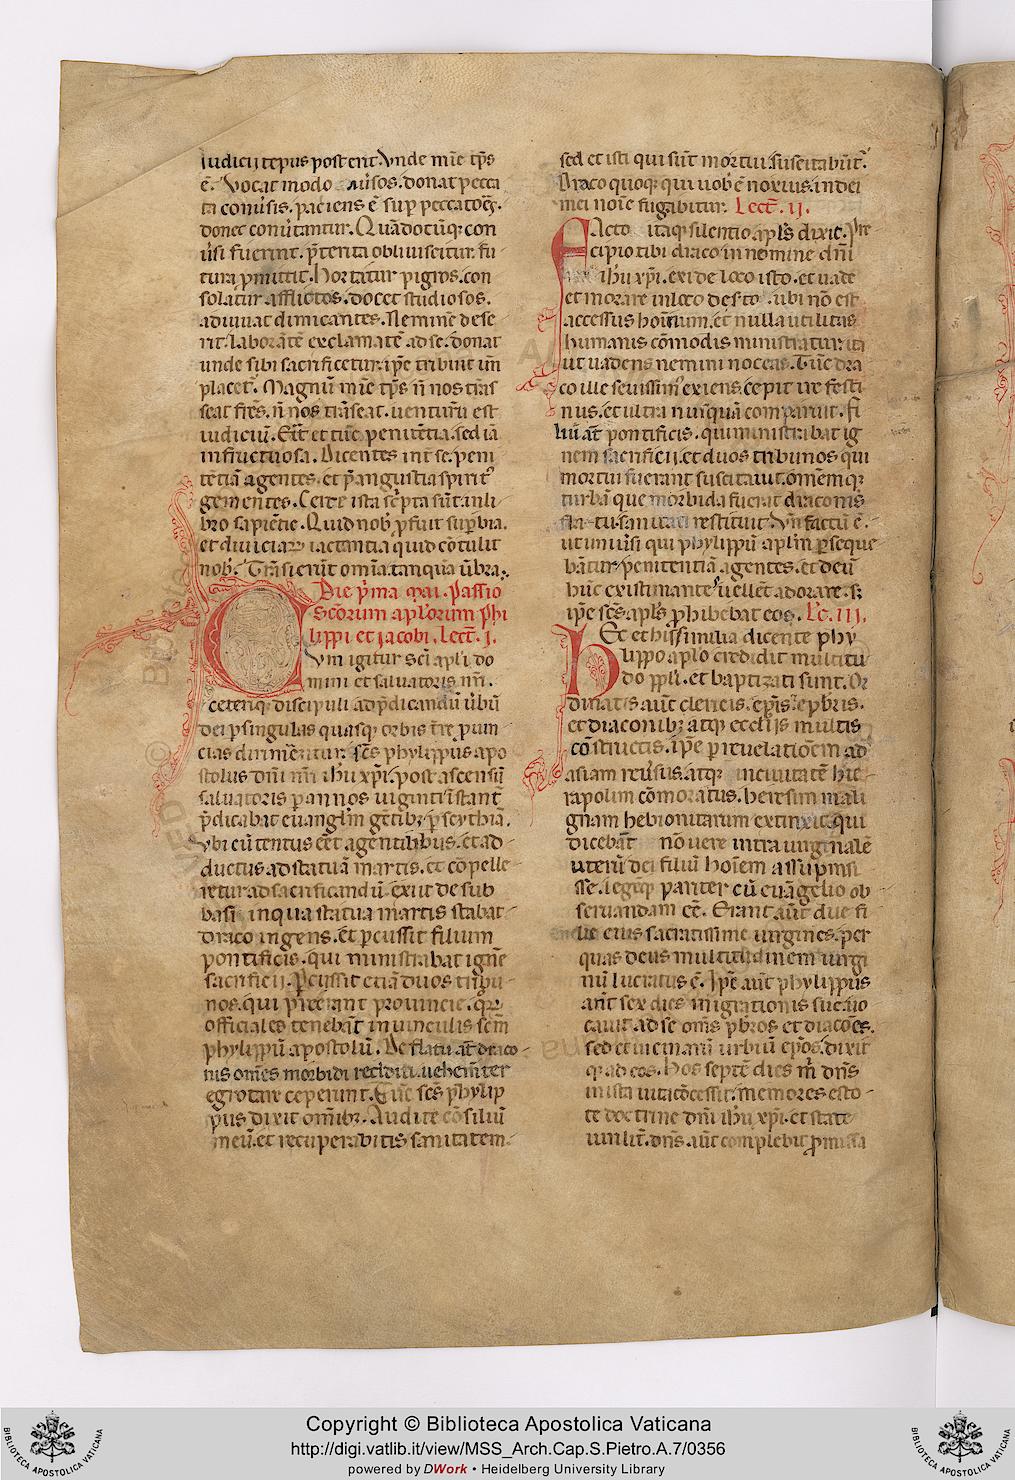 iudicij te̅pus post erit. Vnde mi̅e tp̅s
e̅. Vocat modo auersos. donat pecca
ta co̅nuersis. paciens e̅ sup peccato̅es.
donec conu̅tantur. Qua̅docu̅q; con
u̅si fuerint. p̅terita obliuiscitur. fu
tura p̅mittit. Hortatur pigros. con
solatur afflictos. docet studiosos.
adiuuat dimicantes. Nemine̅ dese
rit. labora̅te̅ exclama̅te̅ ad se. donat
unde sibi sacrificetur. ip̅e tribuit un̅
placet̅. Magnu̅ mi̅e tp̅s n̅ nos tra̅s
seat fr̅es. n̅ nos tra̅seat. uentur̅u est
iudiciu̅. Erit et tu̅c penite̅tia. sed ia̅
infructuosa. Dicentes int̅ se. peni
te̅tia̅ agentes. et p̅ angustia spirit̅
gementes. Certe ista sc̅pta su̅t. in li
bro sapie̅tie. Quid nob̅ p̅fuit sup̅bia.
et diuiciar̅ iactantia quid co̅tulit
nob̅. Tra̅sieru̅t omi̅a. tanqua̅ u̅bra.
Die p̅ma mai. Passio
Sc̅orum ap̅lorum Phi
lippi et iacobi. Lect̅. i.
Cvm igitur sc̅i ap̅li do
mini et saluatoris nr̅i.
ceteriq; discipuli ad p̅dicandu̅ u̅bu̅
dei p singulas quasq; orbis t̅re p̅uin
cias dirime̅rent̅ur. sc̅s phylippus apo
stolus dn̅i nr̅i ih̅u xp̅i. post ascensu̅
saluatoris p annos uiginti i̅stant̅
p̅dicabat eua̅ngl̅m ge̅tib; p scythia̅.
Vbi cu̅ tentus ee̅t a gentilibus. et ad
ductus ad statua̅ martis. et co̅pelle
retur ad sacrificandu̅. exiit de sub
basi in qua statua martis stabat
draco ingens. et p̅cussit filium
pontificis. qui ministrabat igne̅
sacrificij. P̅cussit etia̅ duos tribu
nos. qui p̅erant prouincie. quor̅
officiales teneba̅t in uinculis sc̅m
phylippu̅ apostolu̅. De flatu aut̅ draco
nis om̅es morbidi redditi. uehem̅ter
egrotare ceperunt. Tu̅c sc̅s phylip
pus dixit om̅ib;. Audite co̅siliu̅
meu̅. et recuperabitis sanitatem.
sed et isti qui su̅t mortui. suscitabu̅t̅.
Draco quoq; qui uob̅ e̅ noxius. in dei
mei noi̅e fugabitur. Lect̅. ii.
Facto itaq; silentio. ap̅ls dixit. Pre
cipio tibi draco in nomine dn̅i
ih̅u xp̅i. exi de loco isto. et uade
et morare in loco des̅to. ubi no̅ est
accessus hoi̅num. et nulla utilitas
humanis co̅modis ministratur. ita
ut uadens nemini noceas. Tu̅c dra
co ille seuissim̅ exiens. cepit ire festi
nus. et ultra nu̅squa̅ comparuit. Fi
liu̅ aut̅ pontificis. qui ministrabat ig
nem sacrificij. et duos tribunos qui
mortui fuerant suscitauit. omem̅q;
turba̅ que morbida fuerat draconis
flatu. sanitati restituit. Vn̅ factu̅ e̅.
ut uniu̅si qui phylippu̅ ap̅lm p̅seque
ba̅tur. penitentia̅ agentes. et deu̅
hu̅c existimantes. uelle̅t adorare. S;
ip̅e sc̅s ap̅ls p̅hibebat eos. Lc̅. III.
Hec et hiis similia dicente phy
lippo ap̅lo credidit multitu
do ppl̅i. et baptizati sunt. Or
dinatis aut̅ clericis. ep̅is. et p̅bris.
et diaconib; atq; eccl̅ijs multis
co̅structis. ip̅e p reuelatio̅em ad
asiam reu̅sus. atq; in ciuitate̅ hie
rapolim co̅moratus. heresim mali
gnam hebionitarum extinxit. qui
diceba̅t no̅ uere intra uirginale̅
uteru̅ dei filiu̅ hoi̅em assu̅pmsi
sse. legeq; pariter cu̅ eua̅gelio ob
seruandam ee̅. Erant aut̅ due fi
lie eius sacratissime uirgines. per
quas deus multitudinem uirgi
nu̅ lucratus e̅. Ip̅e aut̅ phylippus
ant̅ sex dies migrationis sue. uo
cauit ad se om̅s p̅bros et diaco̅es.
sed et uicinaru̅ urbiu̅ ep̅os. dixit
q; ad eos. Hos septe̅ dies m̅ dn̅s
in ista uita co̅cessit. memores esto
te doctrine dn̅i ih̅u xp̅i. et state
uirilit̅. Dn̅s aut̅ complebit p̅missa
Copyright © Biblioteca Apostolica Vaticana
http://digi.vatlib.it/view/MSS_Arch.Cap.S.Pietro.A.7/0356
powered by DWork • Heidelberg University Library
BIBLIOTECA APOSTOLICA VATICANA
BIBLIOTECA APOSTOLICA VATICANA